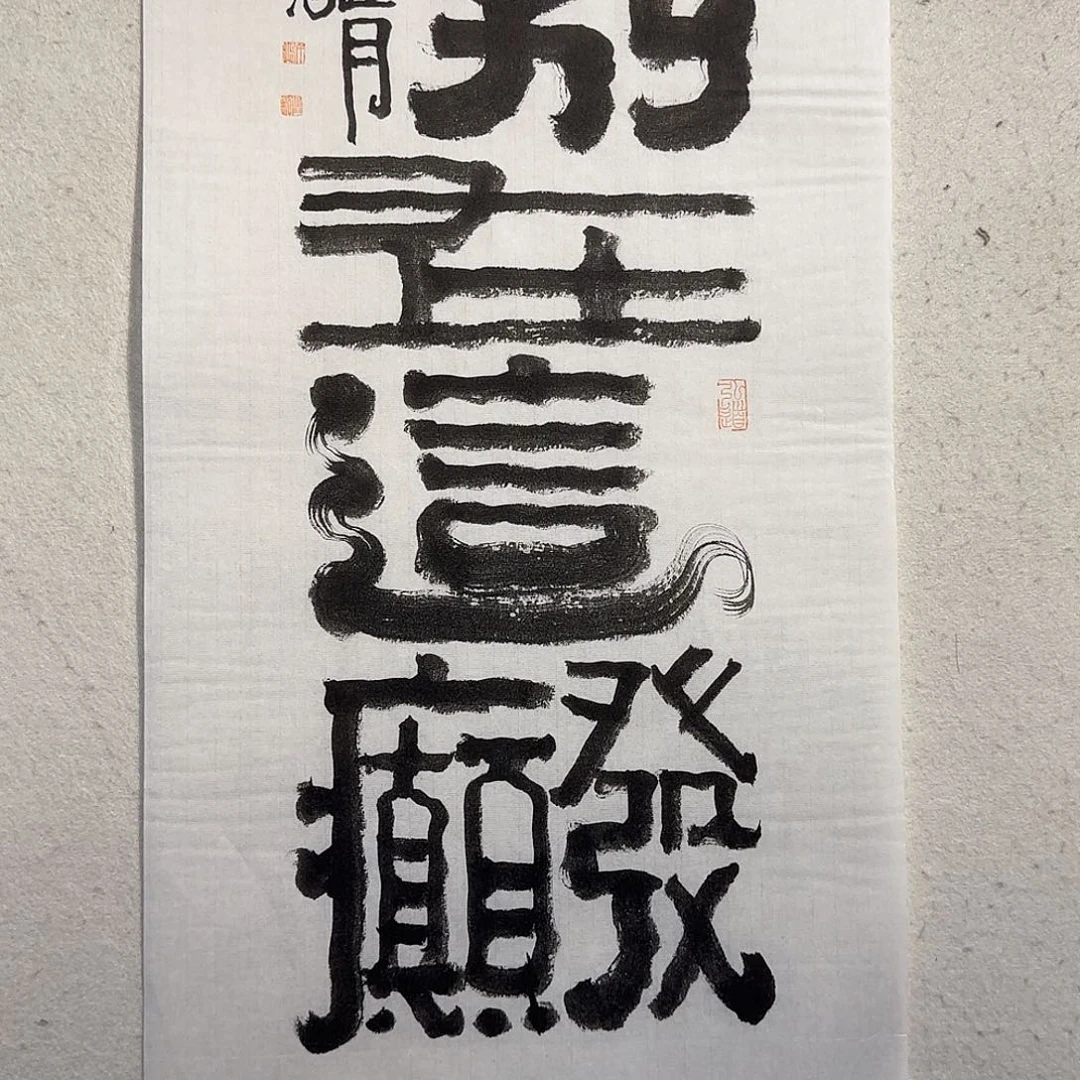 別在這發癲